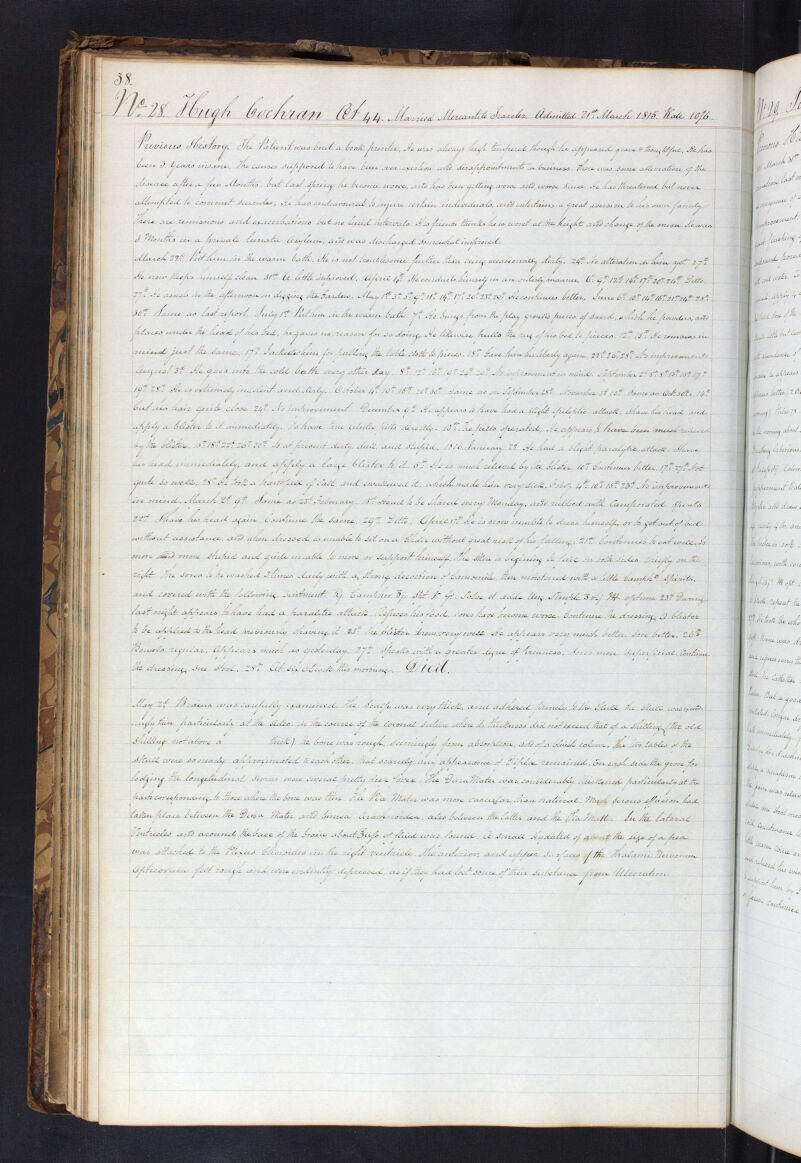 38.
No. 28 Hugh Cochran Æt 44. Married Mercantile Traveler Admitted 21st March 1815. Rate 10/6
Previous History. The Patient was bred a book printer. He was always high tempered though he appeared grave & thoughtful. He has
been 3 Years insane. The causes supposed to have been over exertion and disappointments in business. There was some alleviation of the
disease after a few Months, but last Spring he became worse, and has been getting worse and worse since. He has threatened but never
attempted to commit suicide. He has endeavoured to injure certain individuals, and entertains a great aversion to his own family.
There are remissions and exacerbations but no lucid intervals. His friends thinks he is worst at the height and change of the moon. He was
3 Months in a private lunatic Asylum, and was discharged somewhat improved.
March 22d. Put him in the warm bath. He is not troublesome further than being occasionally dirty. 24th No alteration in him yet. 27th
He now keeps himself clean. 31st A little improved. April 4th He conducts himself in an orderly manner. 6th 9th 12th 14th 17th 20th 24th Ditto.
27th He assists in the afternoon in digging the Garden. May 1st 3d 5th 9th 11th 14th 17th 20th 23d 29th He continues better. June 6th 10th 14th 16th 21st 24th 28th
30th Same as last report. July 1st Put him in the warm bath. 7th He brings from the play ground pieces of sand, which he powders, and
places under the head of his bed, he gives no reason for so doing. He likewise pulls the rug of his bed to pieces. 12th 15th He remains in
mind just the same. 17th Jacketed him for pulling the table cloth to pieces. 18th Gave him his liberty again. 22d 26th 28th No improvement.
August 3d He goes into the cold bath every other day. 8th 12th 16th 19th 24th 26th No improvement in mind. September 2d 5th 8th 11th 15th 17th
19th 28th He is extremely indolent and dirty. October 4th 10th 16th 20th 30th Same as on September 28th. November 3d 10th Same as Oct 30th. 14th
Cut his hair quite close. 24th No improvement. December 6th He appears to have had a slight epileptic attack. Shave his head and
apply a blister to it immediately. To have two active pills directly. 10th The pills operated. He appears to have been much relieved
by the blister. 16th 18th 22d 26th 30th Is at present dirty, dull, and stupid. 1816 January 2d He had a slight paralytic attack. Shave
his head immediately and apply a large blister to it. 5th He is much relieved by its blister. 10th Continues better. 17th 27th Not
quite so well. 28th He took a handful of Salt and swallowed it, which made him very sick. Feby. 4th 10th 16th 23d No improvement
in mind. March 2d 9th Same as 23d February. 18th Head to be shaved every Monday, and rubbed with Camphorated Spirits.
22d Shave his head again. Continue the same. 29th Ditto. April 17th He is now unable to dress himself, or to get out of bed
without assistance, and when dressed is unable to sit on a Chair without great risk of his falling. 21st Continues to eat well. Is
more and more stupid and quite unable to move or support himself. The skin is beginning to on both sides, chiefly on the
right. The sores to be washed 3 times daily with a strong decoction of Camomile, then moistened with a little Camphd Spirits,
and covered with the following Ointment. 23d During
last night appears to have had a paralytic attack. Refuses his food, sores have become worse. Continue the dressing. A blister
to be applied to the head previously shaving it. 25th The blister drew very well. He appears very much better. Sore better. 26th
Bowels regular. Appears much as yesterday. 27th Speaks with a greater degree of firmness. Sores more superficial. Continue
the dressing. One stool. 28th At six O'Clock this morning Died.
May 2d Brain was carefully examined. The Scalp was very thick, and adhered firmly to the Skull. The Skull was quite
thin particularly at the sides in the course of the coronal suture where its thickness did not exceed that of a shilling (The old
Shilling not above a thick) the bone was rough, seemingly from absorption, and of a bluish colour. The two tables of the
skull were so nearly approximated to each other that scarcely any appearance of Diploe remained. On each side the groove for
lodging the longitudinal sinus were several pretty deep . The Dura Mater was considerably thickened particularly at the
parts corresponding to those where the bone was thin. The Pia Mater was more vascular than natural. Much serous effusion had
taken place between the Dura Mater and tunica Arachnoidea, also between the latter and the Pia Mater. In the lateral
Ventricles and around the base of the brain about of fluid were found. A small hydatid of about the size of a pea
was attached to the Plexus Choroides in the right ventricle. The anterior and upper surfaces of the Thalami Nervorum
Opticorum felt rough and were evidently depressed, as if they had lost some of their substance from Ulceration.